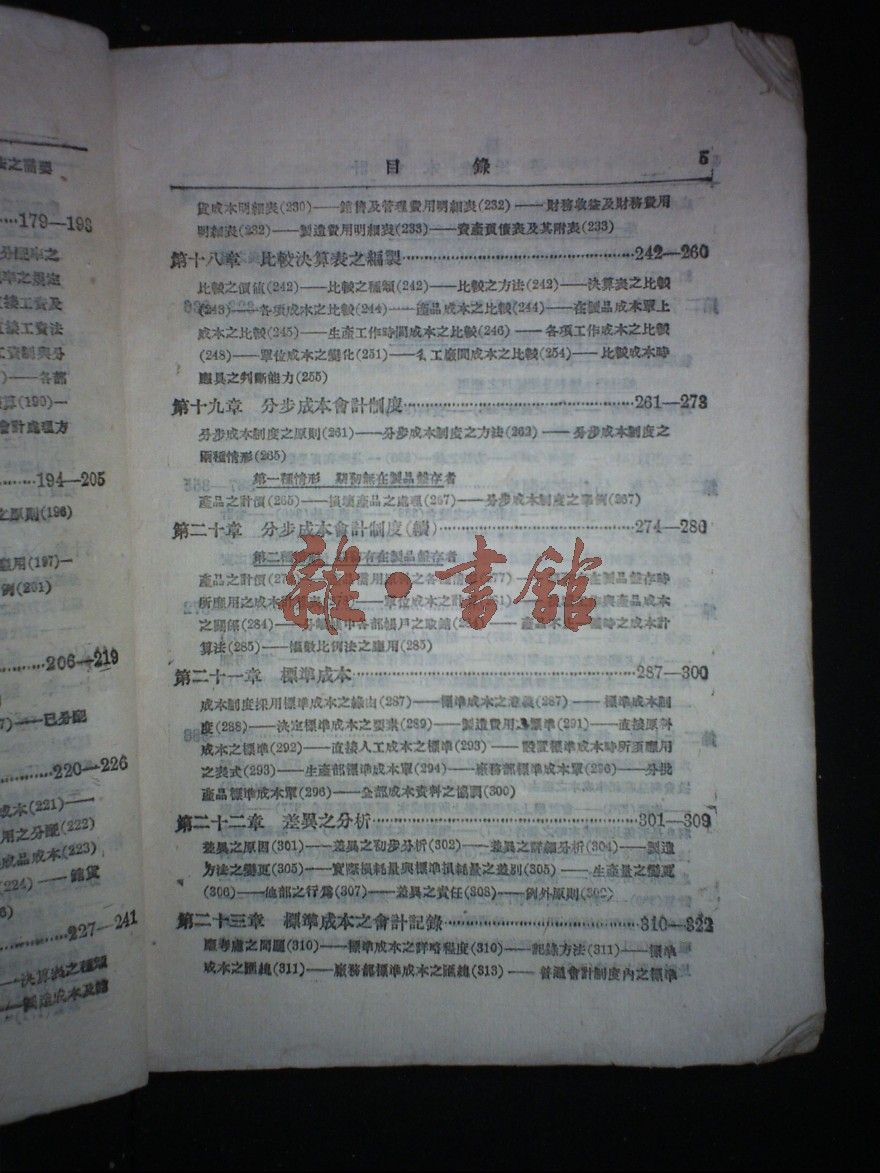 表之編要
179—193
分配率之
率之規定
直接工資及
直接工資法
工資制與分
各部
算(190)—
會計處理方
194—205
之原則(196)
應用(197)—
例(201)
206—219
7)——已分配
220—226
成本(221)——
用之分配(222)
成品成本(223)
(224)——銷貨
227—241
——決算表之種類
——製造成本及銷
目 錄 5
貨成本明細表(230)——銷售及管理費用明細表(232)——財務收益及財務費用
明細表(232)——製造費用明細表(233)——資產負債表及其附表(233)
第十八章 比較決算表之編製 242—260
比較之價值(242)——比較之種類(242)——比較之方法(242)——決算表之比較
(243)——各項成本之比較(244)——產品成本之比較(244)——在製品成本單上
成本之比較(245)——生產工作時間成本之比較(246)——各項工作成本之比較
(248)——單位成本之變化(251)——各工廠間成本之比較(254)——比較成本時
應具之判斷能力(255)
第十九章 分步成本會計制度 261—273
分步成本制度之原則(261)——分步成本制度之方法(262)——分步成本制度之
兩種情形(265)
第一種情形 期初無在製品盤存者
產品之計價(265)——損壞產品之處理(267)——分步成本制度之事例(267)
第二十章 分步成本會計制度(續) 274—286
第二種 有在製品盤存者
產品之計價 應用原料之各 (277)—— 在製品盤存時
所應用之成本計 表(278)——單位成本之計 與產品成本
之關係(284)——分 中各部帳戶之取銷 產品不 時之成本計
算法(285)——個數比例法之應用(285)
第二十一章 標準成本 287—300
成本制度採用標準成本之緣由(287)——標準成本之意義(287)——標準成本制
度(288)——決定標準成本之要素(289)——製造費用之標準(291)——直接原料
成本之標準(292)——直接人工成本之標準(293)——設置標準成本時所須應用
之表式(293)——生產部標準成本單(294)——廠務部標準成本單(296)——分批
產品標準成本單(296)——全部成本資料之協調(300)
第二十二章 差異之分析 301—309
差異之原因(301)——差異之初步分析(302)——差異之詳細分析(304)——製造
方法之變更(305)——實際損耗量與標準損耗量之差別(305)——生產量之變更
(306)——他部之行為(307)——差異之責任(308)——例外原則(302)
第二十三章 標準成本之會計記錄 310—322
應考慮之問題(310)——標準成本之詳略程度(310)——記錄方法(311)——標準
成本之匯總(311)——廠務部標準成本之匯總(313)——普通會計制度內之標準
雜·書館